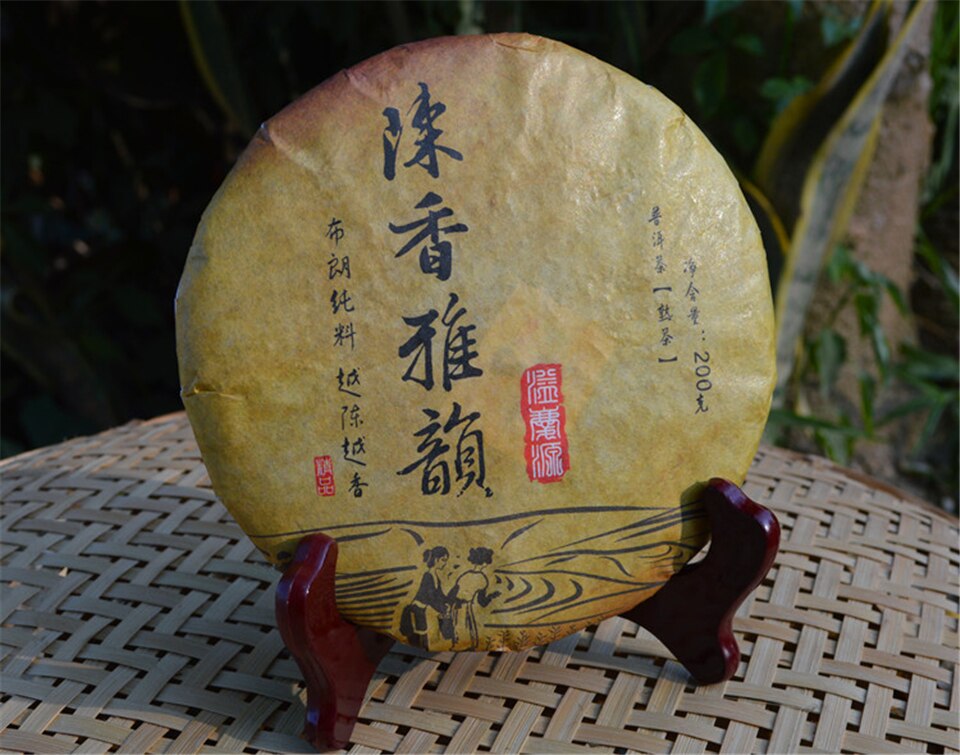 普洱茶【熟茶】
净含量：200克
陈香雅韻
布朗纯料 越陈越香
精品